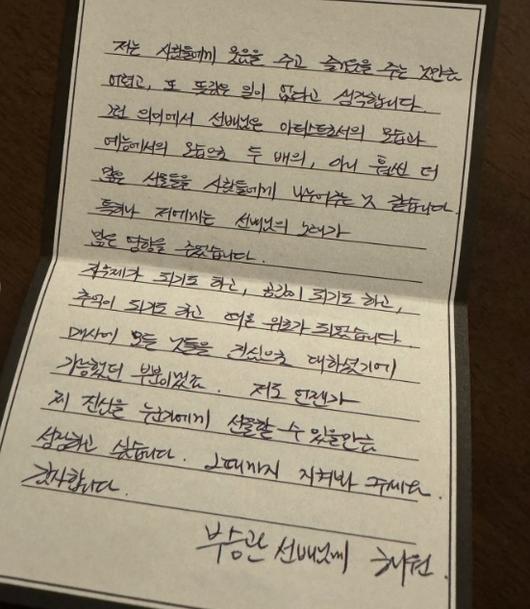 저는 사람들에게 웃음을 주고 즐거움을 주는 것만큼
어렵고, 또 뜻깊은 일이 없다고 생각합니다.
그런 의미에서 선배님은 아티스트로서의 모습과
예능에서의 모습으로 두 배의, 아니 훨씬 더
많은 선물들을 사람들에게 나누어주는 것 같습니다.
특히나 저에게는 선배님의 노래가
많은 영향을 주었습니다.
되기도 하고, 공감이 되기도 하고,
추억이 되기도 하고 때론 위로가 되었습니다
매사에 모든 것들을 진심으로 대하셨기에
가능했던 부분이겠죠. 저도 언젠가
제 진심을 누군가에게 선물할 수 있을만큼
성장하고 싶습니다. 그때까지 지켜봐 주세요.
감사합니다.
부승관 선배님께